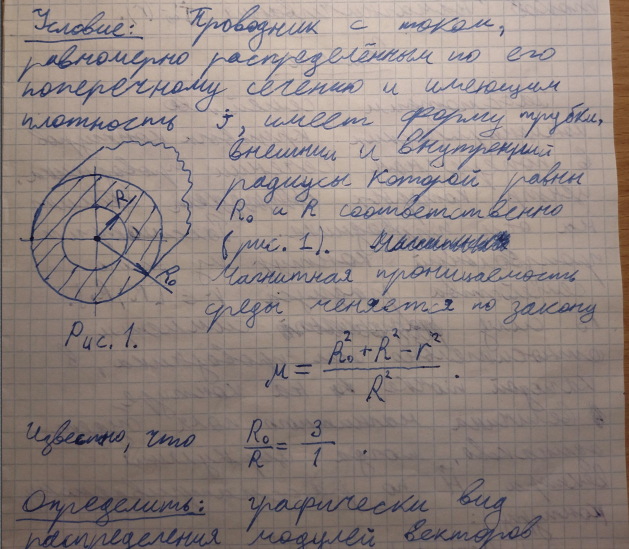 Условие: Проводник с током,
равномерно распределённым по его
поперечному сечению и имеющим
плотность j, имеет форму трубки,
внешний и внутренний
радиусы которой равны
R₀ и R соответственно
(рис. 1).
Магнитная проницаемость
среды меняется по закону
R
R₀
Рис. 1.
μ = (R₀² + R² − r²) / R² .
Известно, что R₀/R = 3/1 .
Определить: графически вид
распределения модулей векторов